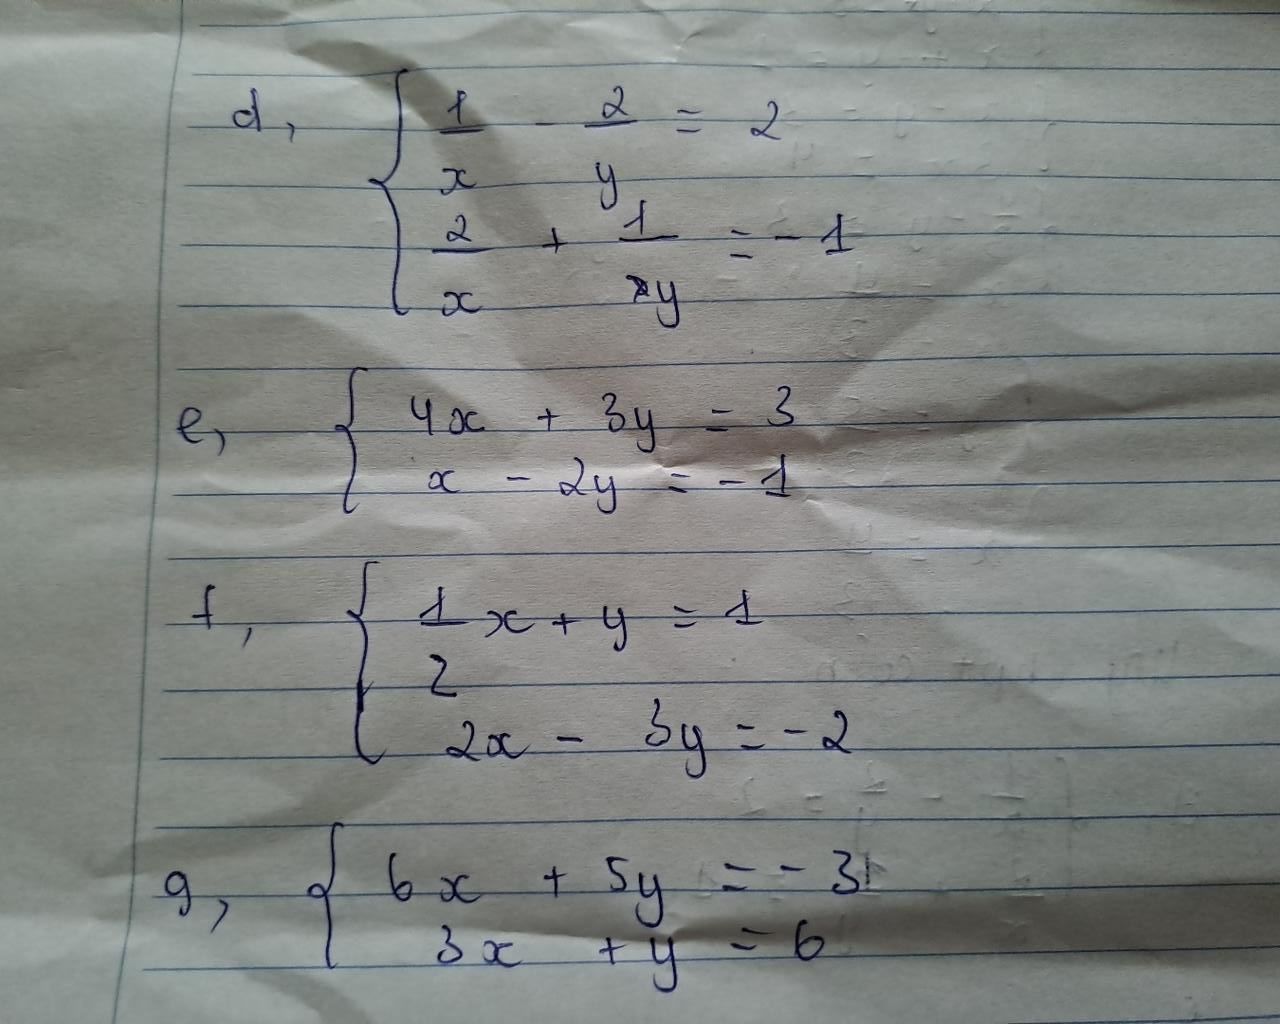 d, { 1/x - 2/y = 2
2/x + 1/y = -1
e, { 4x + 3y = 3
x - 2y = -1
f, { 1/2 x + y = 1
2x - 3y = -2
g, { 6x + 5y = -3
3x + y = 6